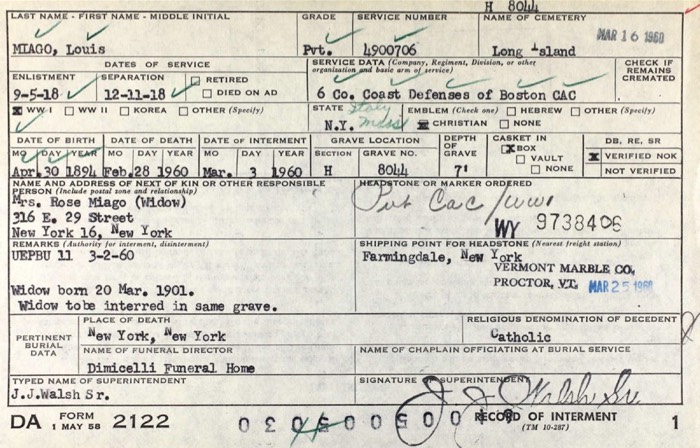 H 8044
LAST NAME - FIRST NAME - MIDDLE INITIAL GRADE SERVICE NUMBER NAME OF CEMETERY
MAR 16 1960
MIAGO, Louis Pvt. 4900706 Long Island
DATES OF SERVICE SERVICE DATA (Company, Regiment, Division, or other organization and basic arm of service) CHECK IF REMAINS CREMATED
ENLISTMENT SEPARATION RETIRED
9-5-18 12-11-18 DIED ON AD 6 Co. Coast Defenses of Boston CAC
WW I WW II KOREA OTHER (Specify) STATE Italy EMBLEM (Check one) HEBREW OTHER (Specify)
N.Y. Mass CHRISTIAN NONE
DATE OF BIRTH DATE OF DEATH DATE OF INTERMENT GRAVE LOCATION DEPTH OF GRAVE CASKET IN DB, RE, SR
MO DAY YEAR MO DAY YEAR MO DAY YEAR SECTION GRAVE NO. BOX VERIFIED NOK
VAULT
Apr. 30 1894 Feb. 28 1960 Mar. 3 1960 H 8044 7' NONE NOT VERIFIED
NAME AND ADDRESS OF NEXT OF KIN OR OTHER RESPONSIBLE PERSON (Include postal zone and relationship) HEADSTONE OR MARKER ORDERED
Mrs. Rose Miago (Widow) Pvt CAC/WWI
316 E. 29 Street
New York 16, New York WY 9738406
REMARKS (Authority for interment, disinterment) SHIPPING POINT FOR HEADSTONE (Nearest freight station)
UEPBU 11 3-2-60 Farmingdale, New York
VERMONT MARBLE CO.
PROCTOR, VT. MAR 25 1960
Widow born 20 Mar. 1901.
Widow tobe interred in same grave.
PERTINENT BURIAL DATA PLACE OF DEATH RELIGIOUS DENOMINATION OF DECEDENT
New York, New York Catholic
NAME OF FUNERAL DIRECTOR NAME OF CHAPLAIN OFFICIATING AT BURIAL SERVICE
Dimicelli Funeral Home
TYPED NAME OF SUPERINTENDENT SIGNATURE OF SUPERINTENDENT
J.J.Walsh Sr. J J Walsh Sr
DA FORM 1 MAY 58 2122 RECORD OF INTERMENT 1
(TM 10-287)